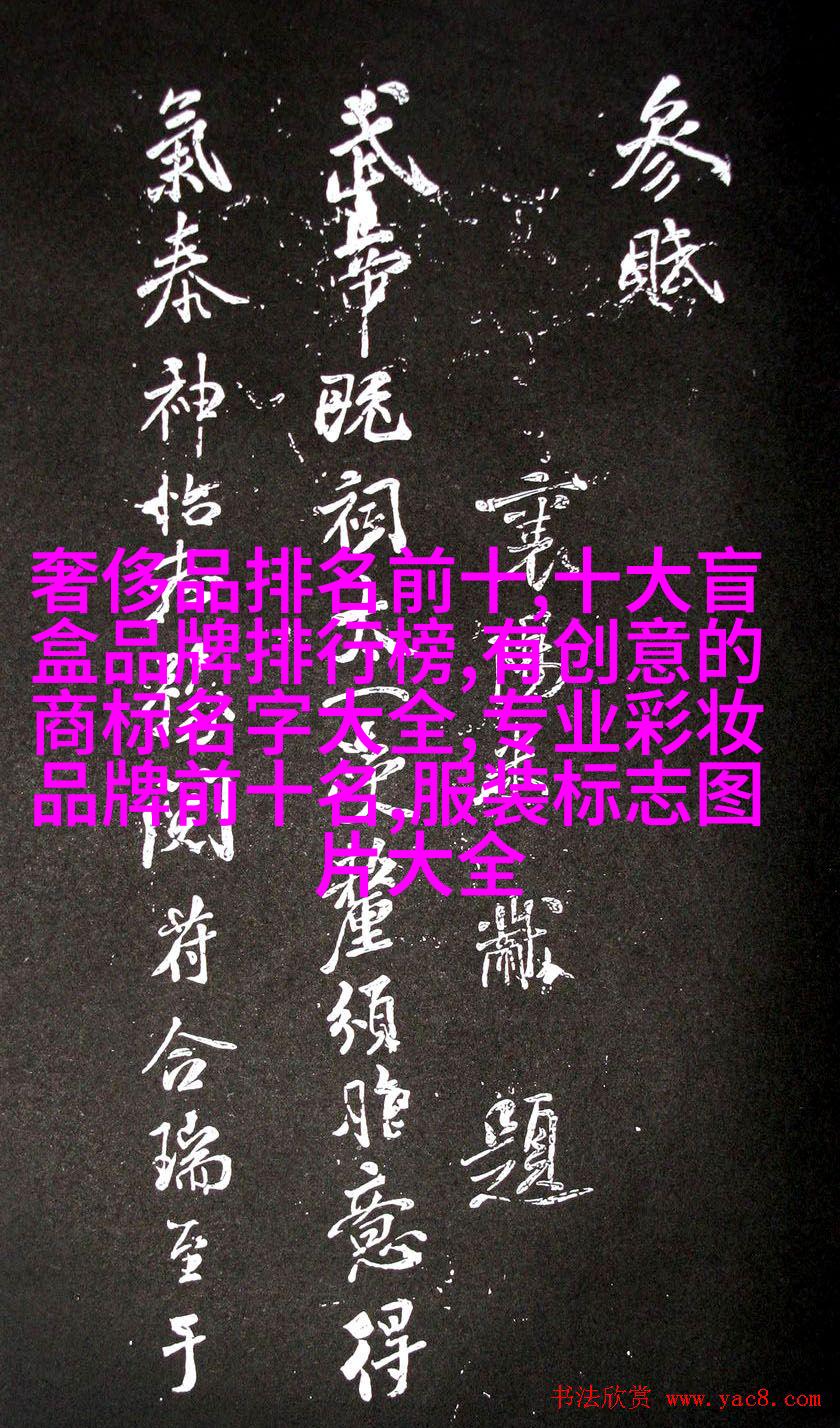 參賦
襄陽米黻題
武帝既祠
釐須臾意得
氣泰神怡
符合瑞至于
奢侈品排名前十,十大盲
盒品牌排行榜,有创意的
商标名字大全,专业彩妆
品牌前十名,服装标志图
片大全
书法欣赏 www.yac8.com